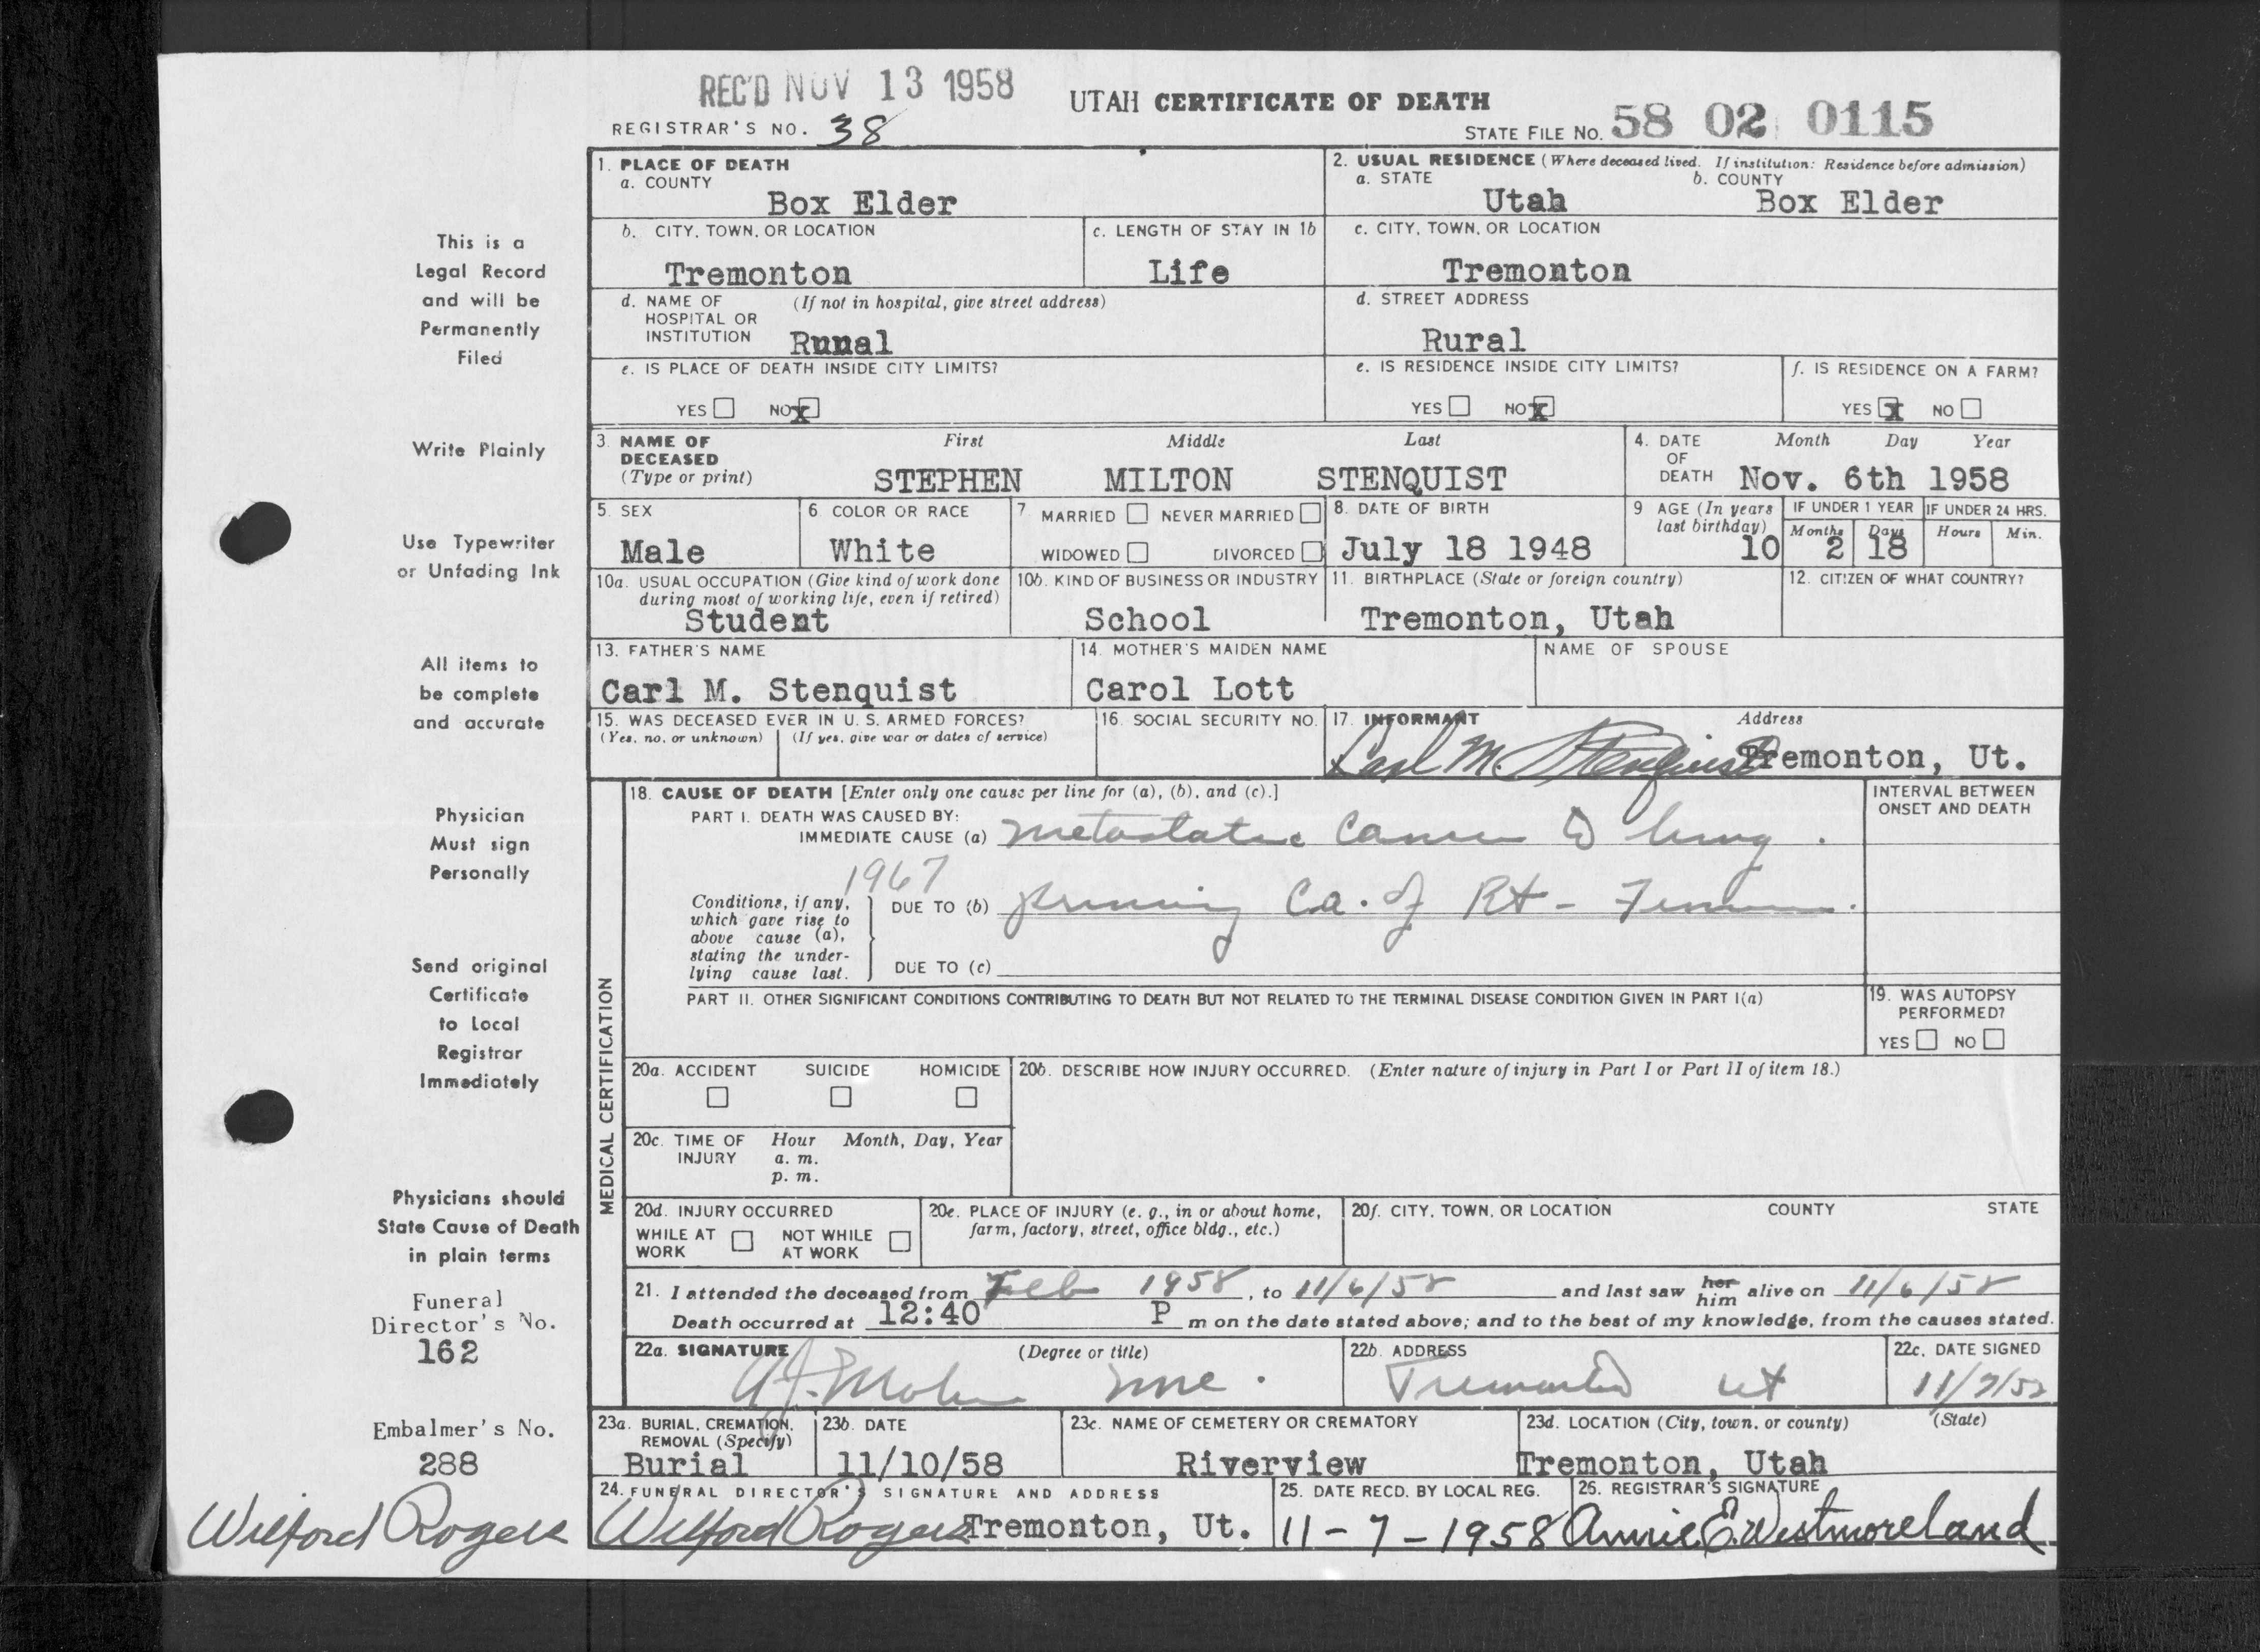 REC'D NOV 13 1958
UTAH CERTIFICATE OF DEATH
REGISTRAR'S NO. 38
STATE FILE NO. 58 02 0115
This is a
Legal Record
and will be
Permanently
Filed
Write Plainly
Use Typewriter
or Unfading Ink
All items to
be complete
and accurate
Physician
Must sign
Personally
Send original
Certificate
to Local
Registrar
Immediately
Physicians should
State Cause of Death
in plain terms
Funeral
Director's No.
162
Embalmer's No.
288
Wilford Rogers
1. PLACE OF DEATH
a. COUNTY
Box Elder
2. USUAL RESIDENCE (Where deceased lived. If institution: Residence before admission)
a. STATE b. COUNTY
Utah Box Elder
b. CITY, TOWN, OR LOCATION
Tremonton
c. LENGTH OF STAY IN 1b
Life
c. CITY, TOWN, OR LOCATION
Tremonton
d. NAME OF (If not in hospital, give street address)
HOSPITAL OR
INSTITUTION Runal
d. STREET ADDRESS
Rural
e. IS PLACE OF DEATH INSIDE CITY LIMITS?
YES NO X
e. IS RESIDENCE INSIDE CITY LIMITS?
YES NO X
f. IS RESIDENCE ON A FARM?
YES X NO
3. NAME OF First Middle Last
DECEASED
(Type or print) STEPHEN MILTON STENQUIST
4. DATE Month Day Year
OF
DEATH Nov. 6th 1958
5. SEX
Male
6. COLOR OR RACE
White
7 MARRIED NEVER MARRIED
WIDOWED DIVORCED
8. DATE OF BIRTH
July 18 1948
9 AGE (In years
last birthday)
10
IF UNDER 1 YEAR
Months Days
2 18
IF UNDER 24 HRS.
Hours Min.
10a. USUAL OCCUPATION (Give kind of work done
during most of working life, even if retired)
Student
10b. KIND OF BUSINESS OR INDUSTRY
School
11. BIRTHPLACE (State or foreign country)
Tremonton, Utah
12. CITIZEN OF WHAT COUNTRY?
13. FATHER'S NAME
Carl M. Stenquist
14. MOTHER'S MAIDEN NAME
Carol Lott
NAME OF SPOUSE
15. WAS DECEASED EVER IN U. S. ARMED FORCES?
(Yes, no, or unknown) (If yes, give war or dates of service)
16. SOCIAL SECURITY NO.
17. INFORMANT Address
Carl M. Stenquist Tremonton, Ut.
MEDICAL CERTIFICATION
18. CAUSE OF DEATH [Enter only one cause per line for (a), (b), and (c).]
INTERVAL BETWEEN
ONSET AND DEATH
PART I. DEATH WAS CAUSED BY:
IMMEDIATE CAUSE (a) metastatic Cancer lung.
1967
Conditions, if any,
which gave rise to
above cause (a),
stating the under-
lying cause last.
DUE TO (b) primary Ca. of Rt - Femur.
DUE TO (c)
PART II. OTHER SIGNIFICANT CONDITIONS CONTRIBUTING TO DEATH BUT NOT RELATED TO THE TERMINAL DISEASE CONDITION GIVEN IN PART I(a)
19. WAS AUTOPSY
PERFORMED?
YES NO
20a. ACCIDENT SUICIDE HOMICIDE
20b. DESCRIBE HOW INJURY OCCURRED. (Enter nature of injury in Part I or Part II of item 18.)
20c. TIME OF Hour Month, Day, Year
INJURY a. m.
p. m.
20d. INJURY OCCURRED
WHILE AT NOT WHILE
WORK AT WORK
20e. PLACE OF INJURY (e. g., in or about home,
farm, factory, street, office bldg., etc.)
20f. CITY, TOWN, OR LOCATION COUNTY STATE
21. I attended the deceased from Feb 1958, to 11/6/58 and last saw her him alive on 11/6/58
Death occurred at 12:40 P m on the date stated above; and to the best of my knowledge, from the causes stated.
22a. SIGNATURE (Degree or title)
22b. ADDRESS
Tremonton ut
22c. DATE SIGNED
23a. BURIAL, CREMATION,
REMOVAL (Specify)
Burial
23b. DATE
11/10/58
23c. NAME OF CEMETERY OR CREMATORY
Riverview
23d. LOCATION (City, town, or county) (State)
Tremonton, Utah
24. FUNERAL DIRECTOR'S SIGNATURE AND ADDRESS
Wilford Rogers Tremonton, Ut.
25. DATE RECD. BY LOCAL REG.
11-7-1958
26. REGISTRAR'S SIGNATURE
Annie E. Westmoreland